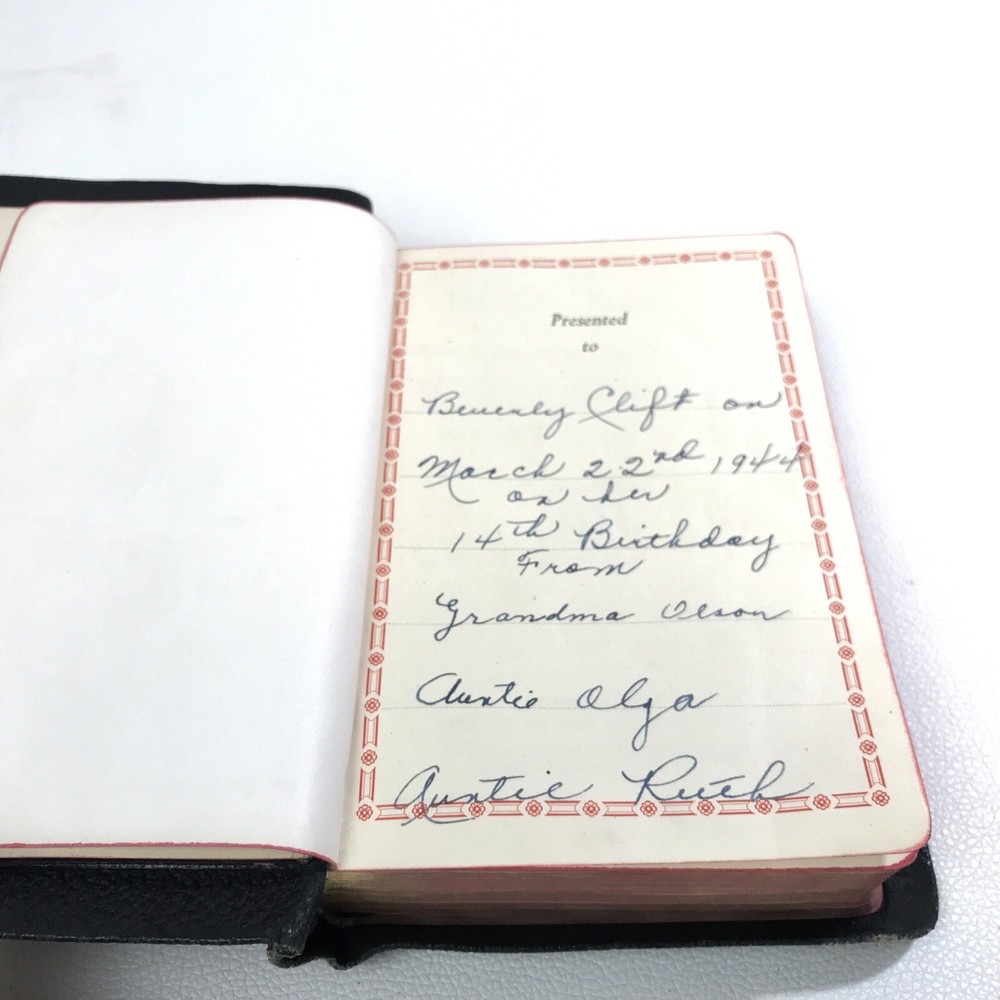 Presented
to
Beverly Clift on
March 22nd, 1944
on her
14th Birthday
From
Grandma Olson
Auntie Olga
Auntie Ruth